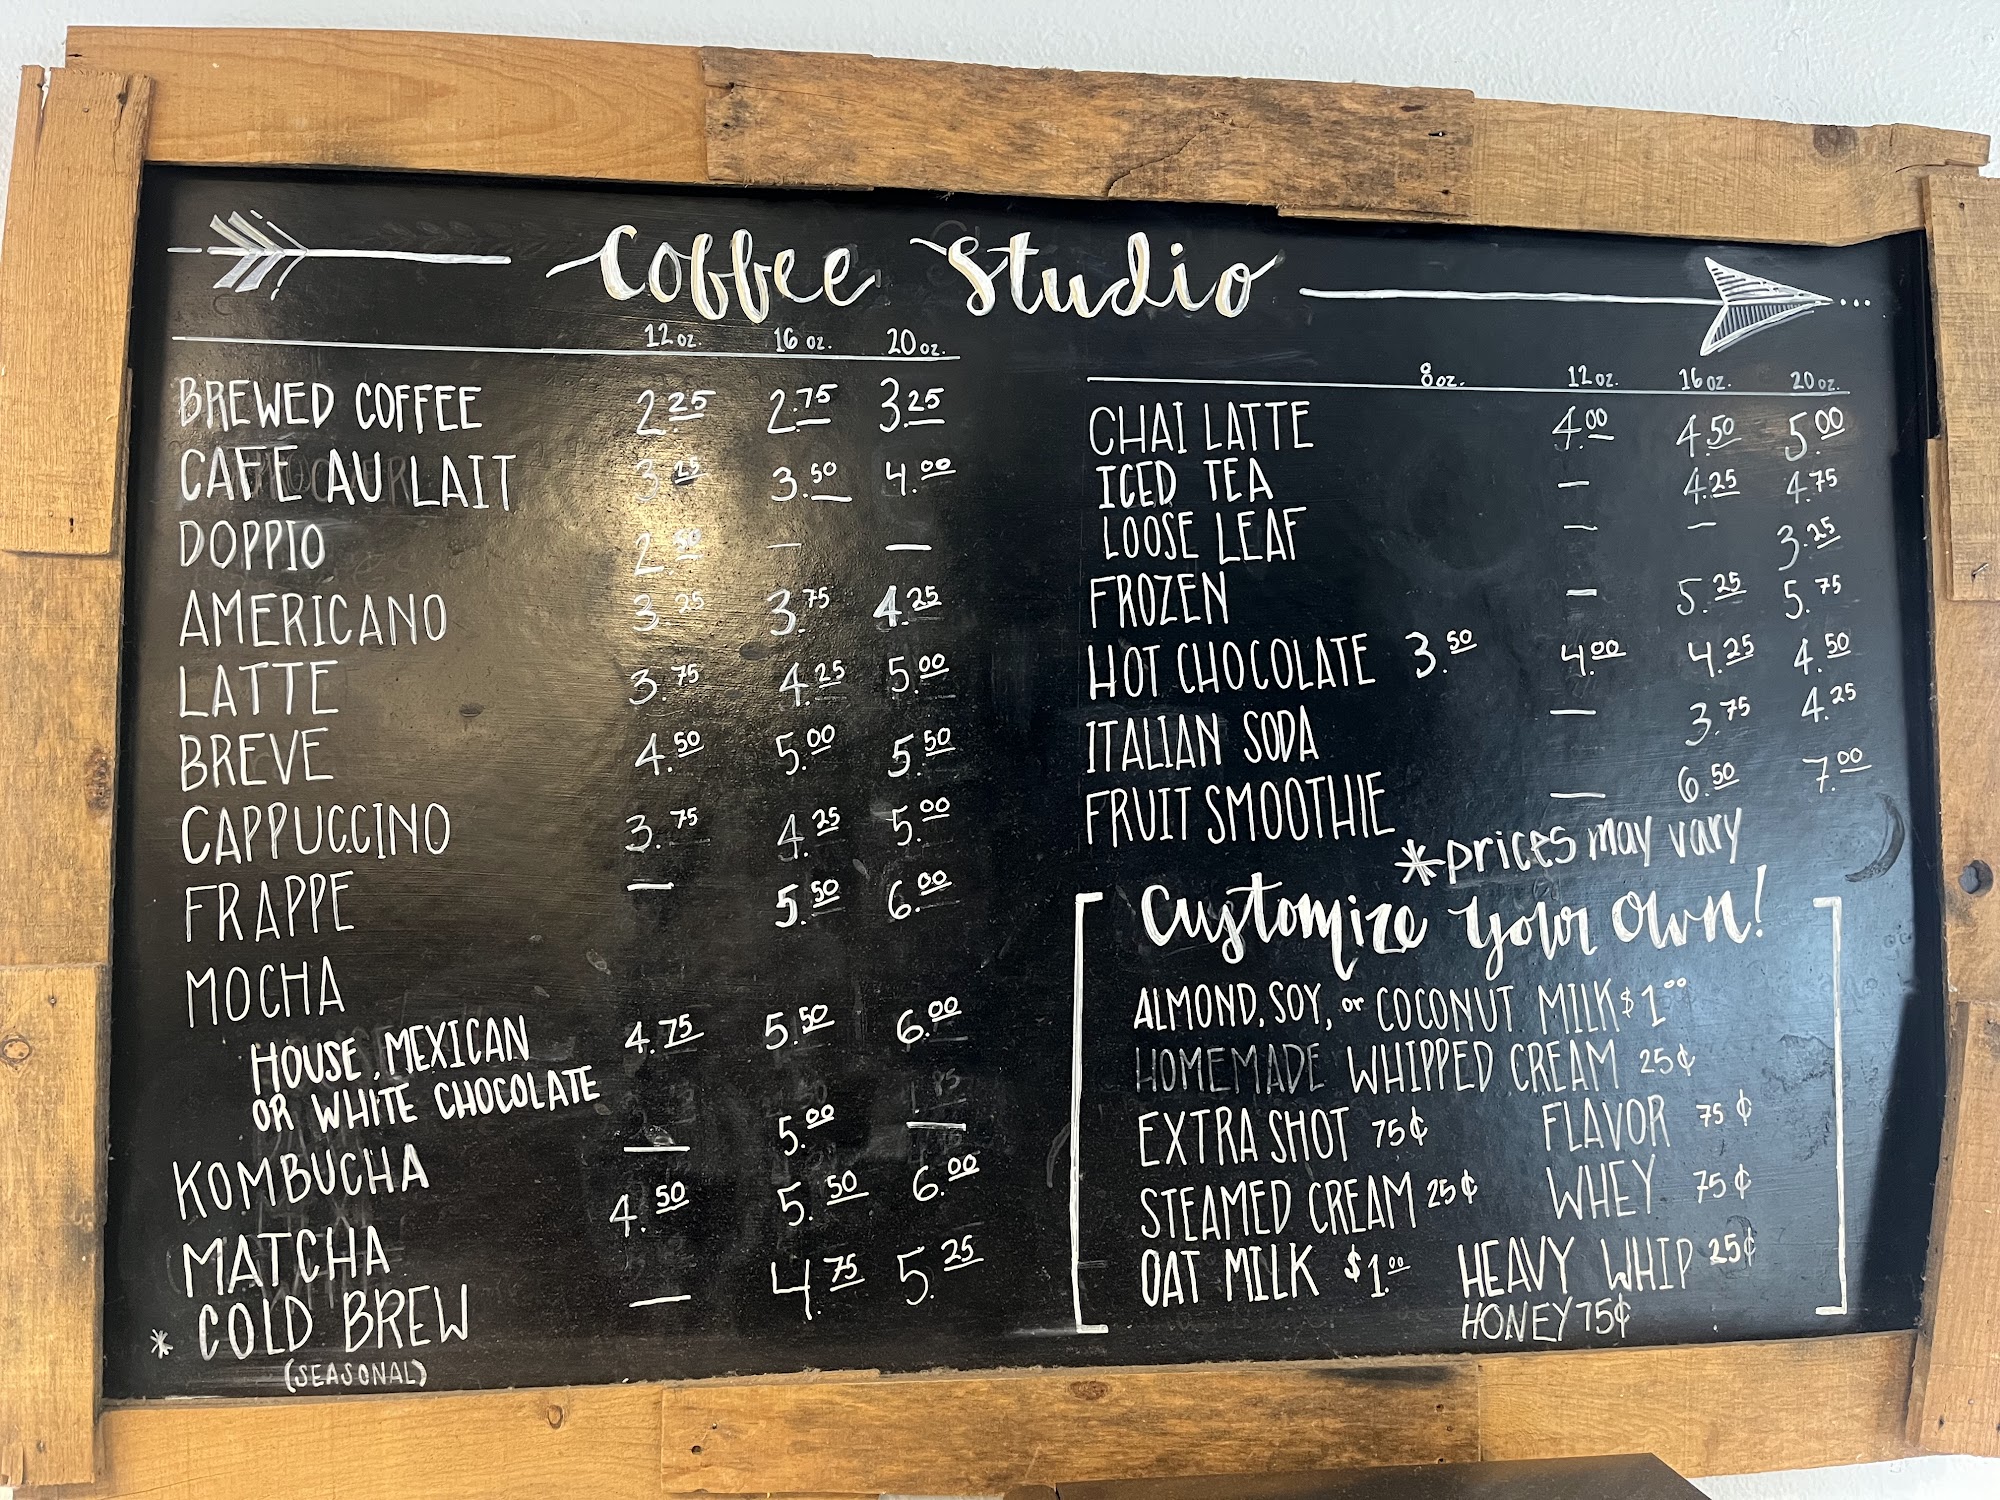 Coffee Studio
12 oz. 16 oz. 20 oz.
BREWED COFFEE 2.25 2.75 3.25
CAFE AU LAIT 3.25 3.50 4.00
DOPPIO 2.50 — —
AMERICANO 3.25 3.75 4.25
LATTE 3.75 4.25 5.00
BREVE 4.50 5.00 5.50
CAPPUCCINO 3.75 4.25 5.00
FRAPPE — 5.50 6.00
MOCHA
HOUSE, MEXICAN 4.75 5.50 6.00
OR WHITE CHOCOLATE
KOMBUCHA — 5.00 —
MATCHA 4.50 5.50 6.00
* COLD BREW — 4.75 5.25
(SEASONAL)
8 oz. 12 oz. 16 oz. 20 oz.
CHAI LATTE 4.00 4.50 5.00
ICED TEA — 4.25 4.75
LOOSE LEAF — — 3.25
FROZEN — 5.25 5.75
HOT CHOCOLATE 3.50 4.00 4.25 4.50
ITALIAN SODA — 3.75 4.25
FRUIT SMOOTHIE — 6.50 7.00
*prices may vary
Customize your own!
ALMOND, SOY, or COCONUT MILK $1.00
HOMEMADE WHIPPED CREAM 25¢
EXTRA SHOT 75¢ FLAVOR 75¢
STEAMED CREAM 25¢ WHEY 75¢
OAT MILK $1.00 HEAVY WHIP 25¢
HONEY 75¢